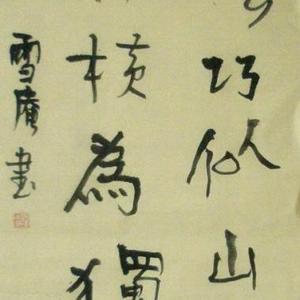 巧似山
横為獨
雪庵書